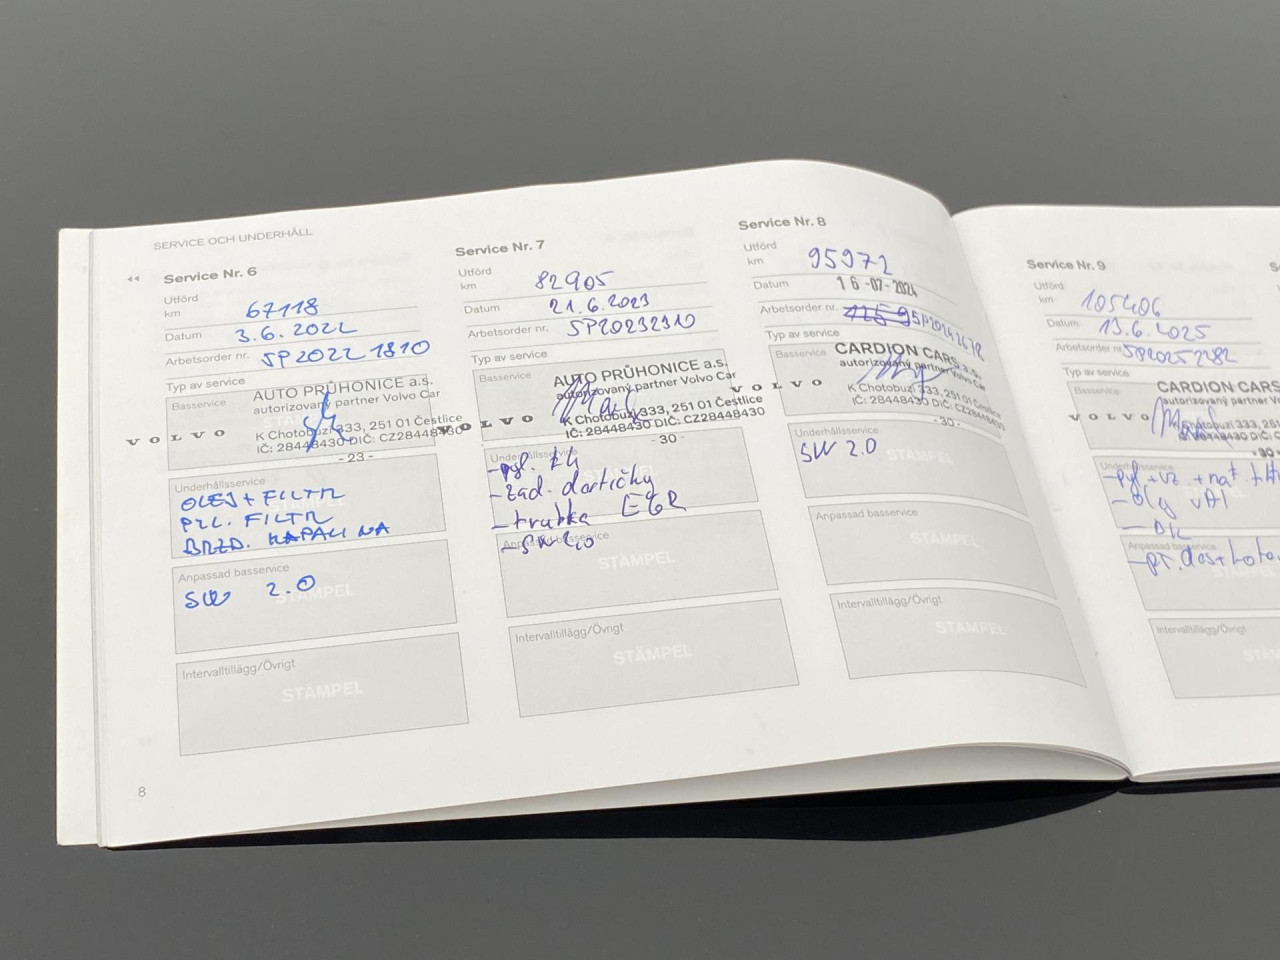 SERVICE OCH UNDERHÅLL
Service Nr. 6
Utförd
km 67118
Datum 3.6.2022
Arbetsorder nr. SP20221810
Typ av service
Basservice
AUTO PRŮHONICE a.s.
autorizovaný partner Volvo Car
VOLVO
K Chotobuzi 333, 251 01 Čestlice
IČ: 28448430 DIČ: CZ28448430
- 23 -
Underhållsservice
OLEJ + FILTR
PYL. FILTR
BRZD. KAPALINA
Anpassad basservice
SW 2.0
STÄMPEL
Intervalltillägg/Övrigt
STÄMPEL
8
Service Nr. 7
Utförd
km 82905
Datum 21.6.2023
Arbetsorder nr. SP20232310
Typ av service
Basservice
AUTO PRŮHONICE a.s.
autorizovaný partner Volvo Car
VOLVO
K Chotobuzi 333, 251 01 Čestlice
IČ: 28448430 DIČ: CZ28448430
- 30 -
Underhållsservice
- pyl.
- zad. destičky
- trubka EGR
Anpassad basservice
- SW 2.0
STÄMPEL
Intervalltillägg/Övrigt
STÄMPEL
Service Nr. 8
Utförd
km 95972
Datum 16-07-2024
Arbetsorder nr.
Typ av service
Basservice
CARDION CARS a.s.
autorizovaný partner Volvo Car
VOLVO
K Chotobuzi 333, 251 01 Čestlice
IČ: 28448430 DIČ: CZ28448430
- 30 -
Underhållsservice
SW 2.0
STÄMPEL
Anpassad basservice
STÄMPEL
Intervalltillägg/Övrigt
STÄMPEL
Service Nr. 9
Utförd
km 105406
Datum 13.6.2025
Arbetsorder nr SP20252282
Typ av service
Basservice
CARDION CARS
autorizovaný partner Vo
VOLVO
Chotobuzi 333, 251
- 30 -
Underhållsservice
Anpassad basservice
Intervalltillägg/Övrigt